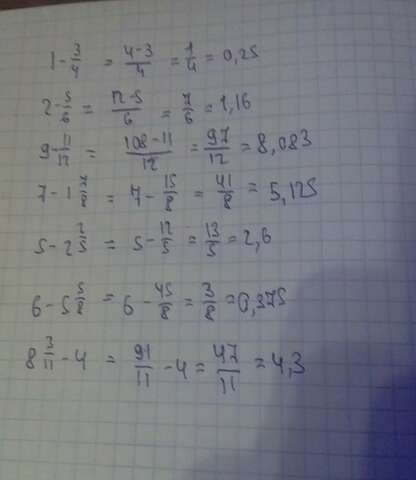 1 - 3/4 = (4-3)/4 = 1/4 = 0,25
2 - 5/6 = (12-5)/6 = 7/6 = 1,16
9 - 11/12 = (108-11)/12 = 97/12 = 8,083
7 - 1 7/8 = 7 - 15/8 = 41/8 = 5,125
5 - 2 2/5 = 5 - 12/5 = 13/5 = 2,6
6 - 5 5/8 = 6 - 45/8 = 3/8 = 0,375
8 3/11 - 4 = 91/11 - 4 = 47/11 = 4,3